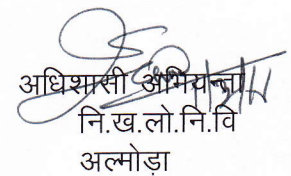 अधिशासी अभियन्ता
नि.ख.लो.नि.वि
अल्मोड़ा